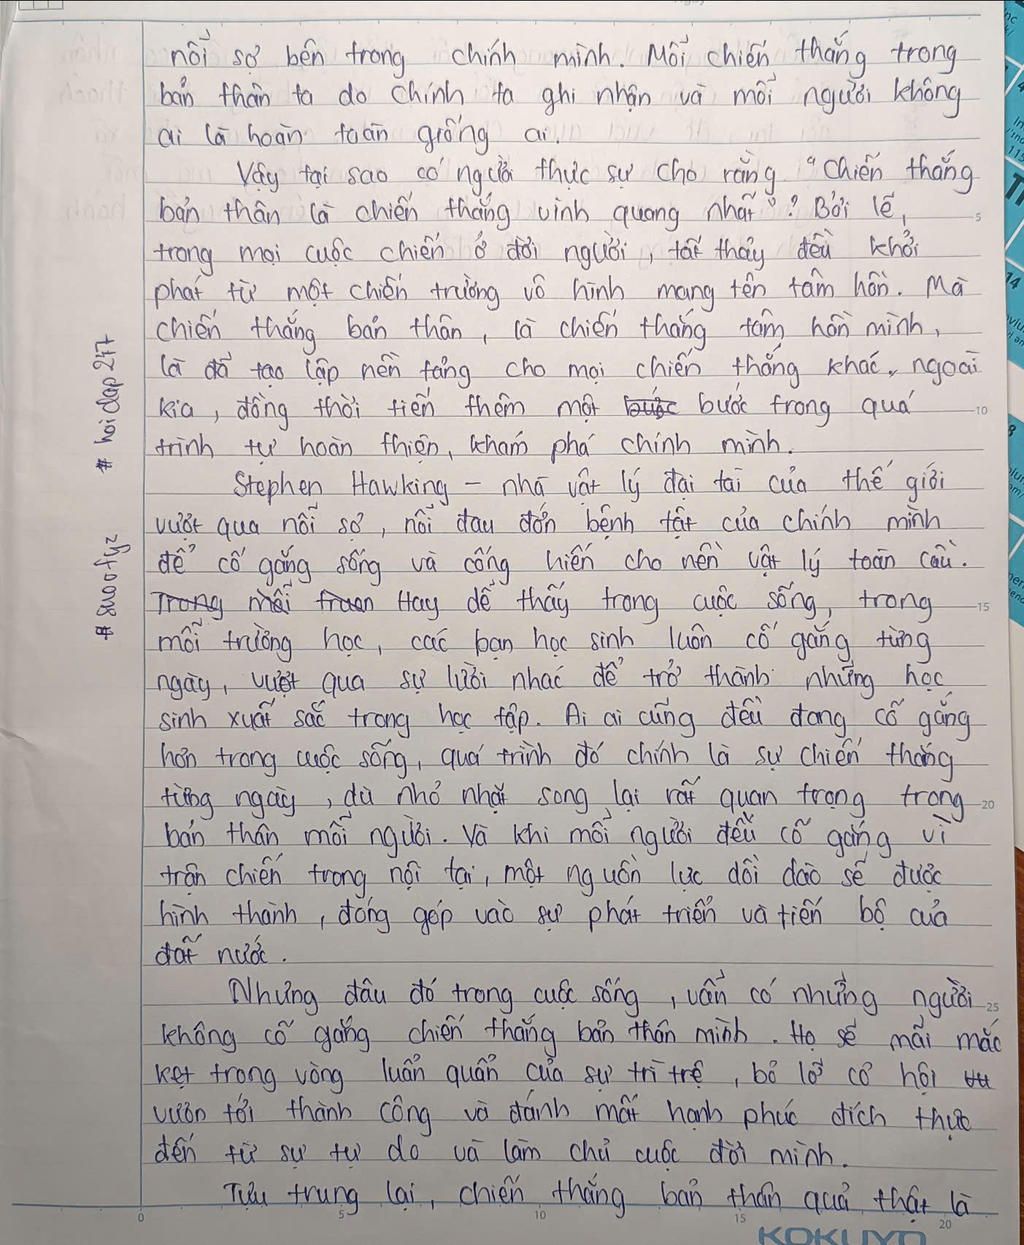 nỗi sợ bên trong chính mình. Mỗi chiến thắng trong
bản thân ta do chính ta ghi nhận và mỗi người không
ai là hoàn toàn giống ai.
Vậy tại sao có người thực sự cho rằng "Chiến thắng
bản thân là chiến thắng vinh quang nhất"? Bởi lẽ,
trong mọi cuộc chiến ở đời người, tất thảy đều khởi
phát từ một chiến trường vô hình mang tên tâm hồn. Mà
chiến thắng bản thân, là chiến thắng tâm hồn mình,
là đã tạo lập nền tảng cho mọi chiến thắng khác, ngoài
kia, đồng thời tiến thêm một bước bước trong quá
trình tự hoàn thiện, khám phá chính mình.
Stephen Hawking - nhà vật lý đại tài của thế giới
vượt qua nỗi sợ, nỗi đau đớn bệnh tật của chính mình
để cố gắng sống và cống hiến cho nền vật lý toàn cầu.
Trong mỗi Hay dễ thấy trong cuộc sống, trong
môi trường học, các bạn học sinh luôn cố gắng từng
ngày, vượt qua sự lười nhác để trở thành những học
sinh xuất sắc trong học tập. Ai ai cũng đều đang cố gắng
hơn trong cuộc sống, quá trình đó chính là sự chiến thắng
từng ngày, dù nhỏ nhặt song lại rất quan trọng trong
bản thân mỗi người. Và khi mỗi người đều cố gắng vì
trận chiến trong nội tại, một nguồn lực dồi dào sẽ được
hình thành, đóng góp vào sự phát triển và tiến bộ của
đất nước.
Nhưng đâu đó trong cuộc sống, vẫn có những người
không cố gắng chiến thắng bản thân mình. Họ sẽ mãi mắc
kẹt trong vòng luẩn quẩn của sự trì trệ, bỏ lỡ cơ hội
vươn tới thành công và đánh mất hạnh phúc đích thực
đến từ sự tự do và làm chủ cuộc đời mình.
Tựu trung lại, chiến thắng bản thân quả thật là
# hoidap247
5
10
15
20
25
0 5 10 15 20
KOKUYO